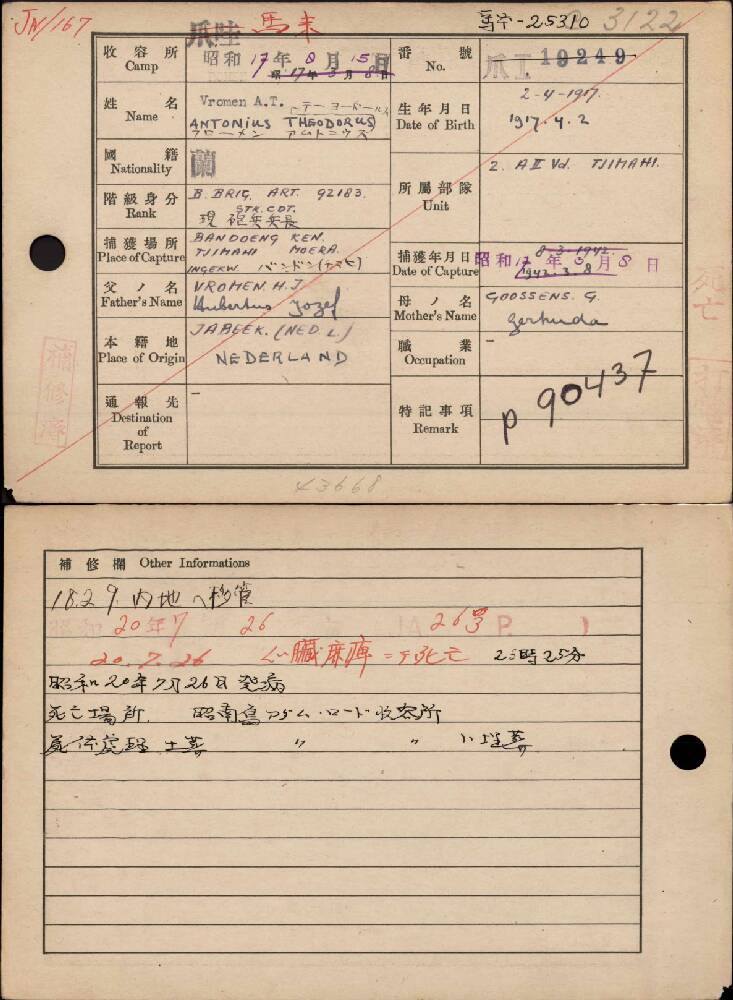 JM/167
爪哇 馬来
馬来-25310
3122
收容所 Camp
昭和17年8月15日
昭17年3月8日
番號 No.
爪I 19249
姓名 Name
Vromen A.T.
ANTONIUS THEODORUS)
フローメン アントニウス
生年月日 Date of Birth
2-4-1917.
1917.4.2
國籍 Nationality
蘭
階級身分 Rank
B.BRIG. ART. 92183.
STR.CDT.
現 砲兵兵長
所屬部隊 Unit
2. A II Vd. TJIMAHI.
捕獲場所 Place of Capture
BANDOENG KEN.
TJIMAHI MOERA.
INGEKW. バンドン(チマヒ)
捕獲年月日 Date of Capture
8-3-1942
昭和17年3月8日
1942.3.8
父ノ名 Father's Name
VROMEN. H.J.
Hubertus Jozef
母ノ名 Mother's Name
GOOSSENS. G.
Gertruda
本籍地 Place of Origin
JABEEK. (NED L.)
NEDERLAND
職業 Occupation
-
通報先 Destination of Report
-
特記事項 Remark
P 90437
補修済
死亡
43668
補修欄 Other Informations
18.2.9. 内地ヘ移管
昭和20年7 26
20.7.26 心臓麻痺ニテ死亡 23時25分
昭和20年7月26日発病
死亡場所. 昭南島アダム・ロード收容所
死体処理 土葬 〃 〃 ニ埋葬